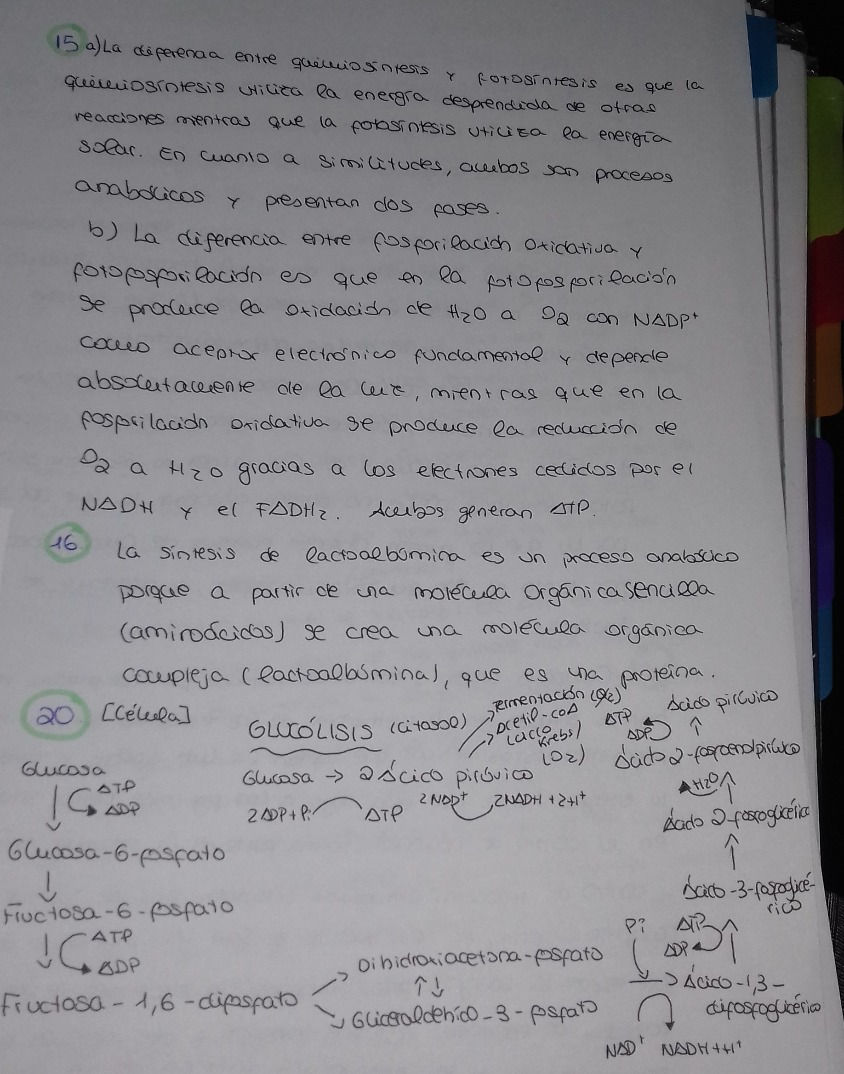 15 a) La diferencia entre quimiosíntesis y fotosíntesis es que la
quimiosíntesis utiliza la energía desprendida de otras
reacciones mientras que la fotosíntesis utiliza la energía
solar. En cuanto a similitudes, ambos son procesos
anabólicos y presentan dos fases.
b) La diferencia entre fosforilación oxidativa y
fotofosforilación es que en la fotofosforilación
se produce la oxidación de H2O a O2 con NADP+
como aceptor electrónico fundamental y depende
absolutamente de la luz, mientras que en la
fosforilación oxidativa se produce la reducción de
O2 a H2O gracias a los electrones cedidos por el
NADH y el FADH2. Ambos generan ATP.
16 La síntesis de lactoalbúmina es un proceso anabólico
porque a partir de una molécula orgánica sencilla
(aminoácidos) se crea una molécula orgánica
compleja (lactoalbúmina), que es una proteína.
20 [Célula]
GLUCÓLISIS (citosol)
Fermentación
Acetil-coA
(ciclo Krebs)
(O2)
Glucosa → 2 Ácico pirúvico
2ADP+Pi ATP 2NAD+ 2NADH + 2H+
Glucosa
↓ ATP
ADP
Glucosa-6-fosfato
↓
Fructosa-6-fosfato
↓ ATP
ADP
Fructosa-1,6-difosfato
Dihidroxiacetona-fosfato
↑↓
Gliceraldehído-3-fosfato
Pi
→ Ácico-1,3-
difosfoglicérico
NAD+ NADH+H+
ATP ↑
ADP
Ácido-3-fosfoglicé-
rico
↑
Ácido 2-fosfoglicérico
H2O ↑
Ácido 2-fosfoenolpirúvico
ATP ↑
ADP
Ácido pirúvico